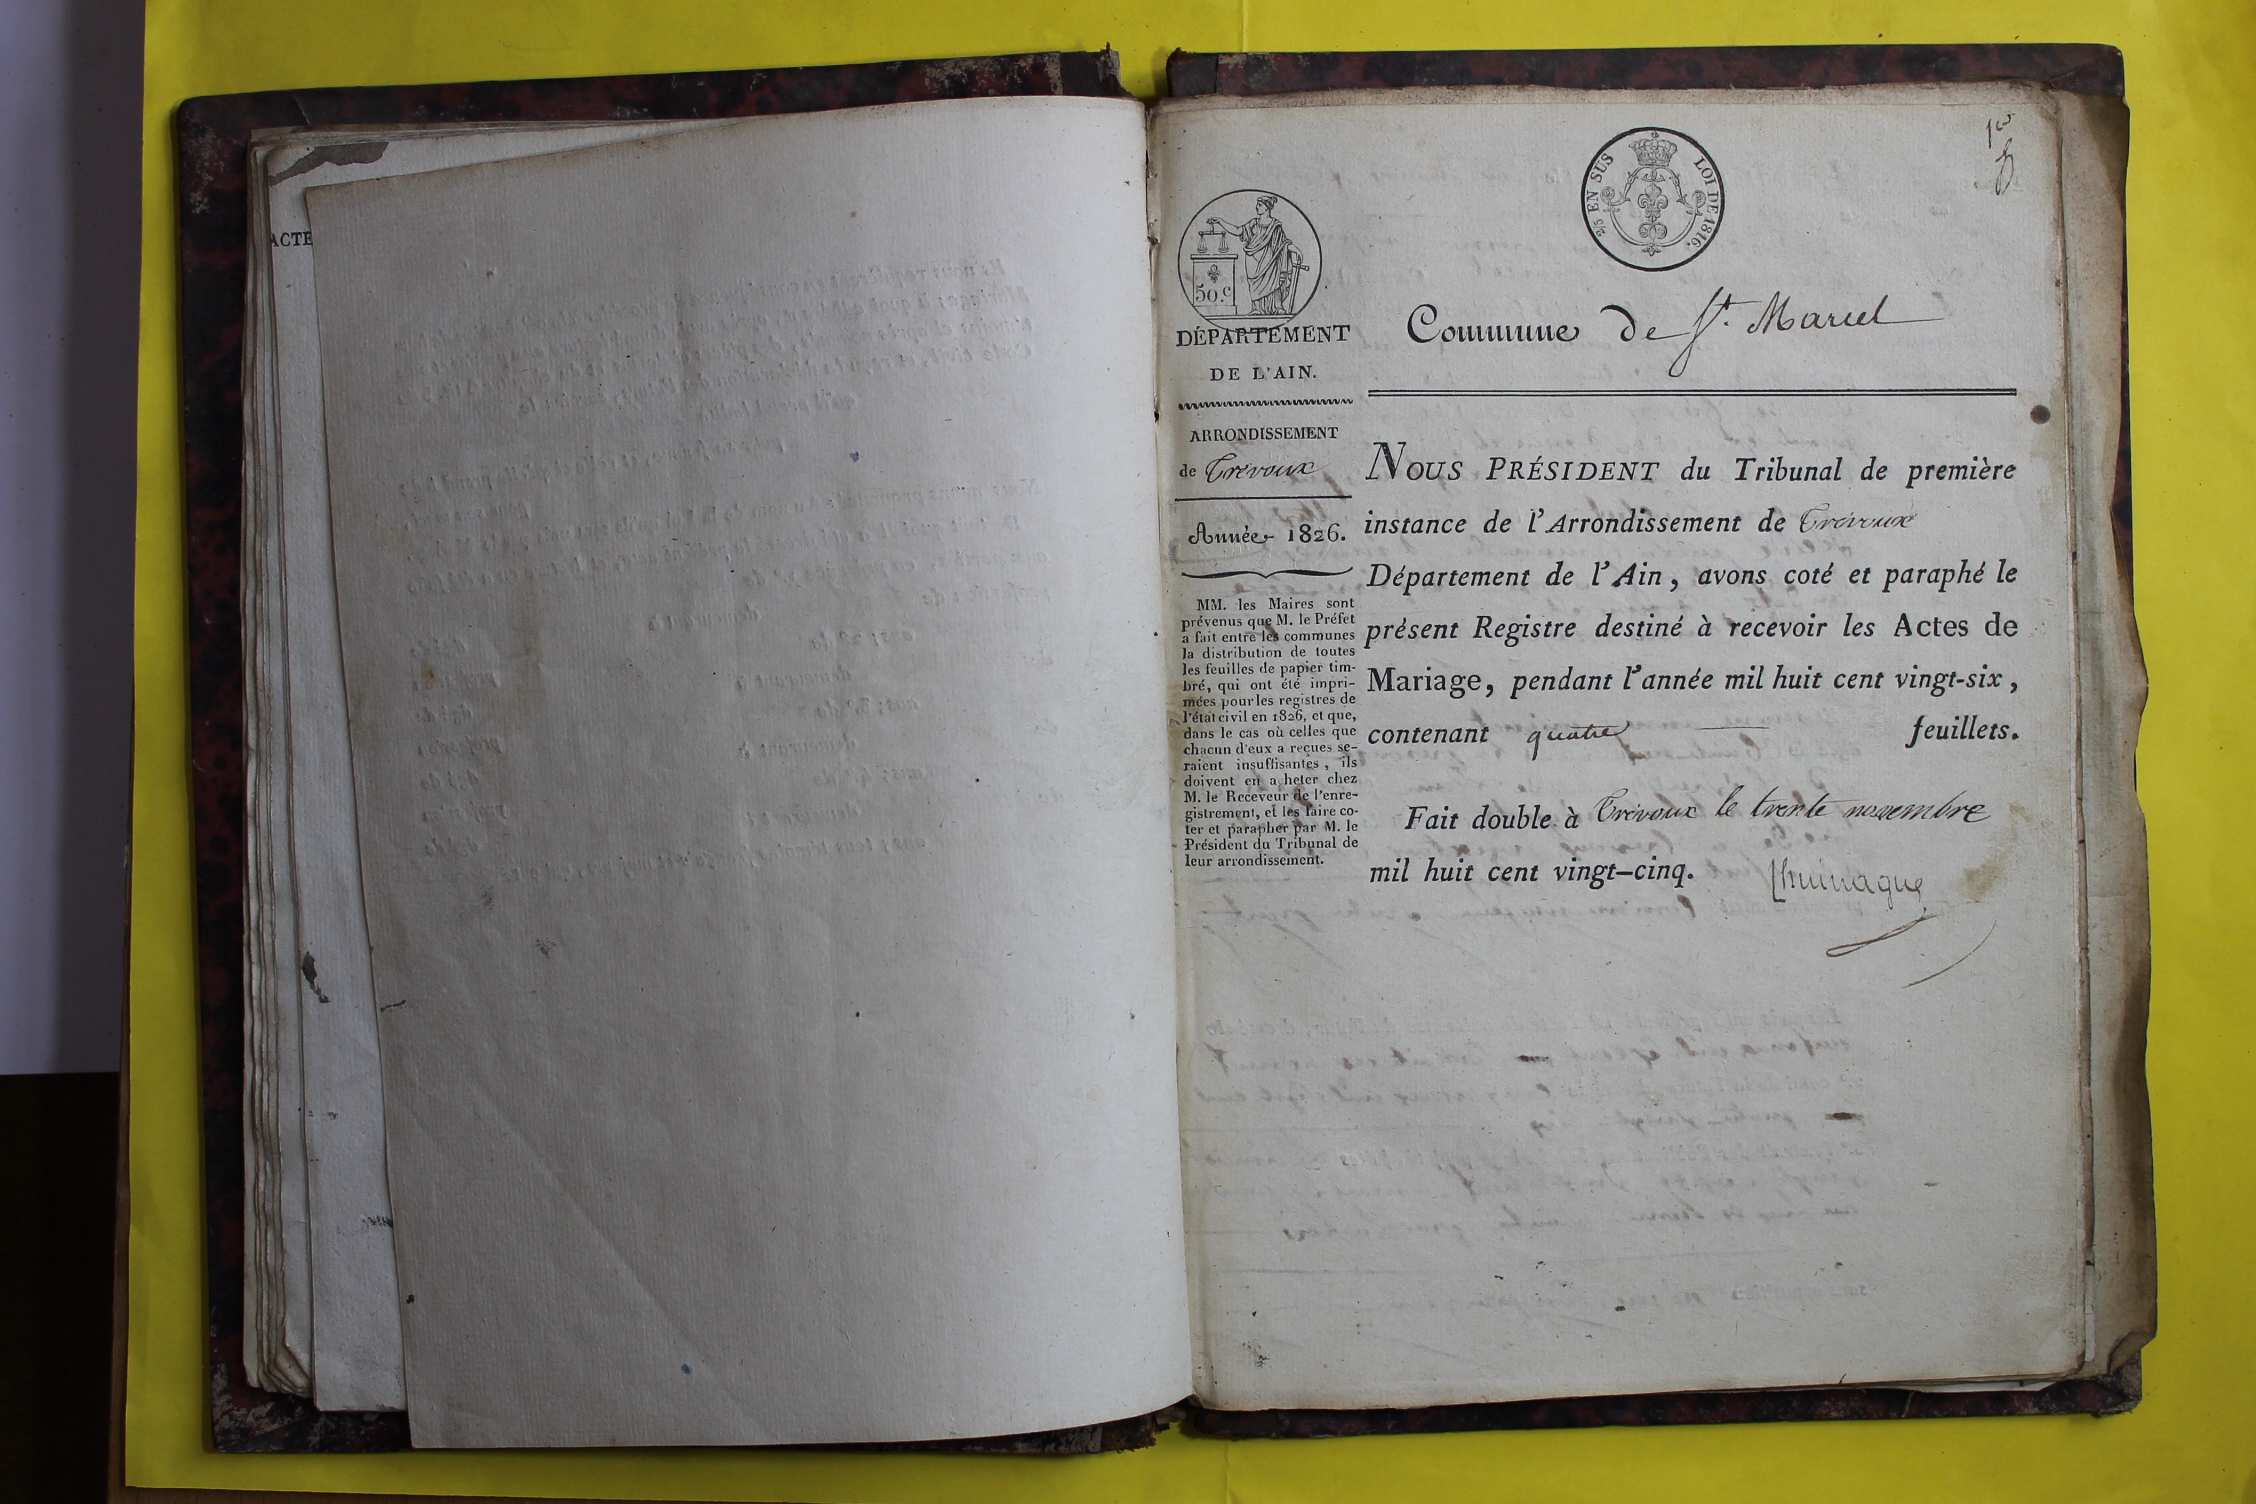 ACTE
1er
2/5 EN SUS
LOI DE 1816.
50.c
DÉPARTEMENT
DE L'AIN.
ARRONDISSEMENT
de Trévoux
Année 1826.
MM. les Maires sont
prévenus que M. le Préfet
a fait entre les communes
la distribution de toutes
les feuilles de papier tim-
bré, qui ont été impri-
mées pour les registres de
l'état civil en 1826, et que,
dans le cas où celles que
chacun d'eux a reçues se-
raient insuffisantes, ils
doivent en a heter chez
M. le Receveur de l'enre-
gistrement, et les faire co-
ter et parapher par M. le
Président du Tribunal de
leur arrondissement.
Commune de St. Marcel
NOUS PRÉSIDENT du Tribunal de première
instance de l'Arrondissement de Trévoux
Département de l'Ain, avons coté et paraphé le
présent Registre destiné à recevoir les Actes de
Mariage, pendant l'année mil huit cent vingt-six,
contenant quatre feuillets.
Fait double à Trévoux le trente novembre
mil huit cent vingt-cinq.